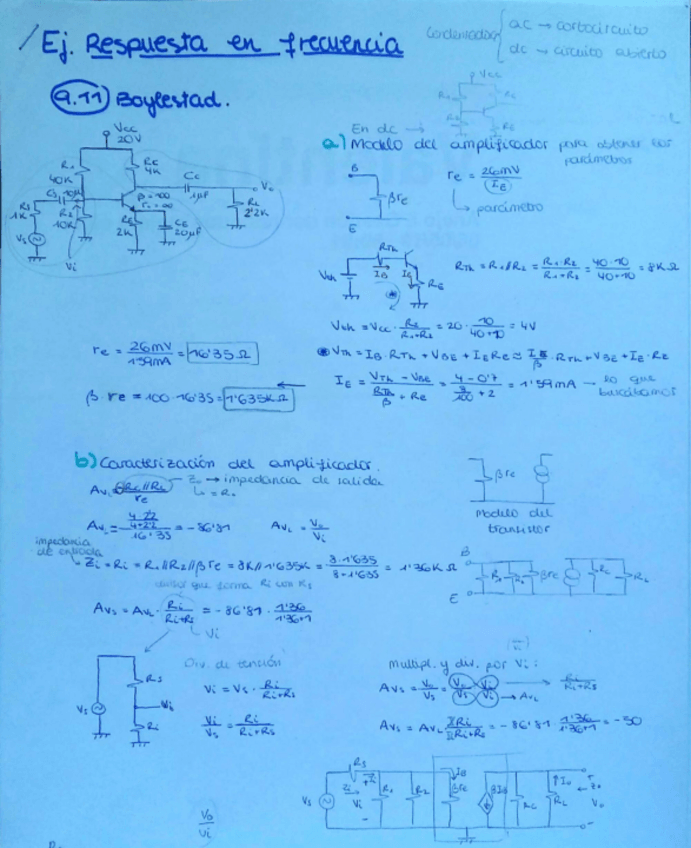 Ej. Respuesta en frecuencia
Condensador ac → cortocircuito
dc → circuito abierto
9.11 Boylestad.
Vcc
20V
R1
40K
Rc
4K
Cc
1µF
Vo
RL
2'2K
Rs
1K
Cs 10µF
R2
10K
β=100
ro=∞
RE
2K
CE
20µF
Vs
Vi
En dc →
Vcc
R1
Rc
R2
RE
a) Modelo del amplificador para obtener los
parámetros
B
βre
E
re = 26mV / IE
↳ parámetro
Vth
RTh
IB
IE
RE
RTh = R1//R2 = R1·R2 / R1+R2 = 40·10 / 40+10 = 8KΩ
Vth = Vcc · R2 / R1+R2 = 20 · 10 / 40+10 = 4V
VTh = IB·RTh + VBE + IE·RE ≈ IE/β · RTh + VBE + IE·RE
IE = VTh - VBE / RTh/β + RE = 4 - 0'7 / 8/100 + 2 = 1'59mA → lo que
buscábamos
re = 26mV / 1'59mA = 16'35Ω
β·re = 100·16'35 = 1'635KΩ
b) Caracterización del amplificador.
AvL = -Rc//RL / re
Zo → impedancia de salida
↳ = Ro
AvL = - 4·2'2 / 4+2'2 / 16'35 = -86'81
AvL = Vo / Vi
βre
Modelo del
transistor
impedancia
de entrada
Zi = Ri = R1//R2//βre = 8K//1'635K = 8·1'635 / 8+1'635 = 1'36KΩ
divisor que forma Ri con Rs
AvS = AvL · Ri / Ri+Rs = -86'81 · 1'36 / 1'36+1
Vi
B
R1
R2
βre
Rc
RL
E
Vs
Rs
Vi
Ri
Div. de tensión
Vi = Vs · Ri / Ri+Rs
Vi / Vs = Ri / Ri+Rs
Multipl. y div. por Vi:
AvS = Vo / Vs = Vo / Vs · Vi / Vi → AvL
Ri / Ri+Rs
AvS = AvL Ri / Ri+Rs = -86'81 1'36 / 1'36+1 = -50
Vs
Rs
Zi
Vi
R1
R2
IB
βre
βIB
Rc
RL
Io
Zo
Vo
Vo / Vi